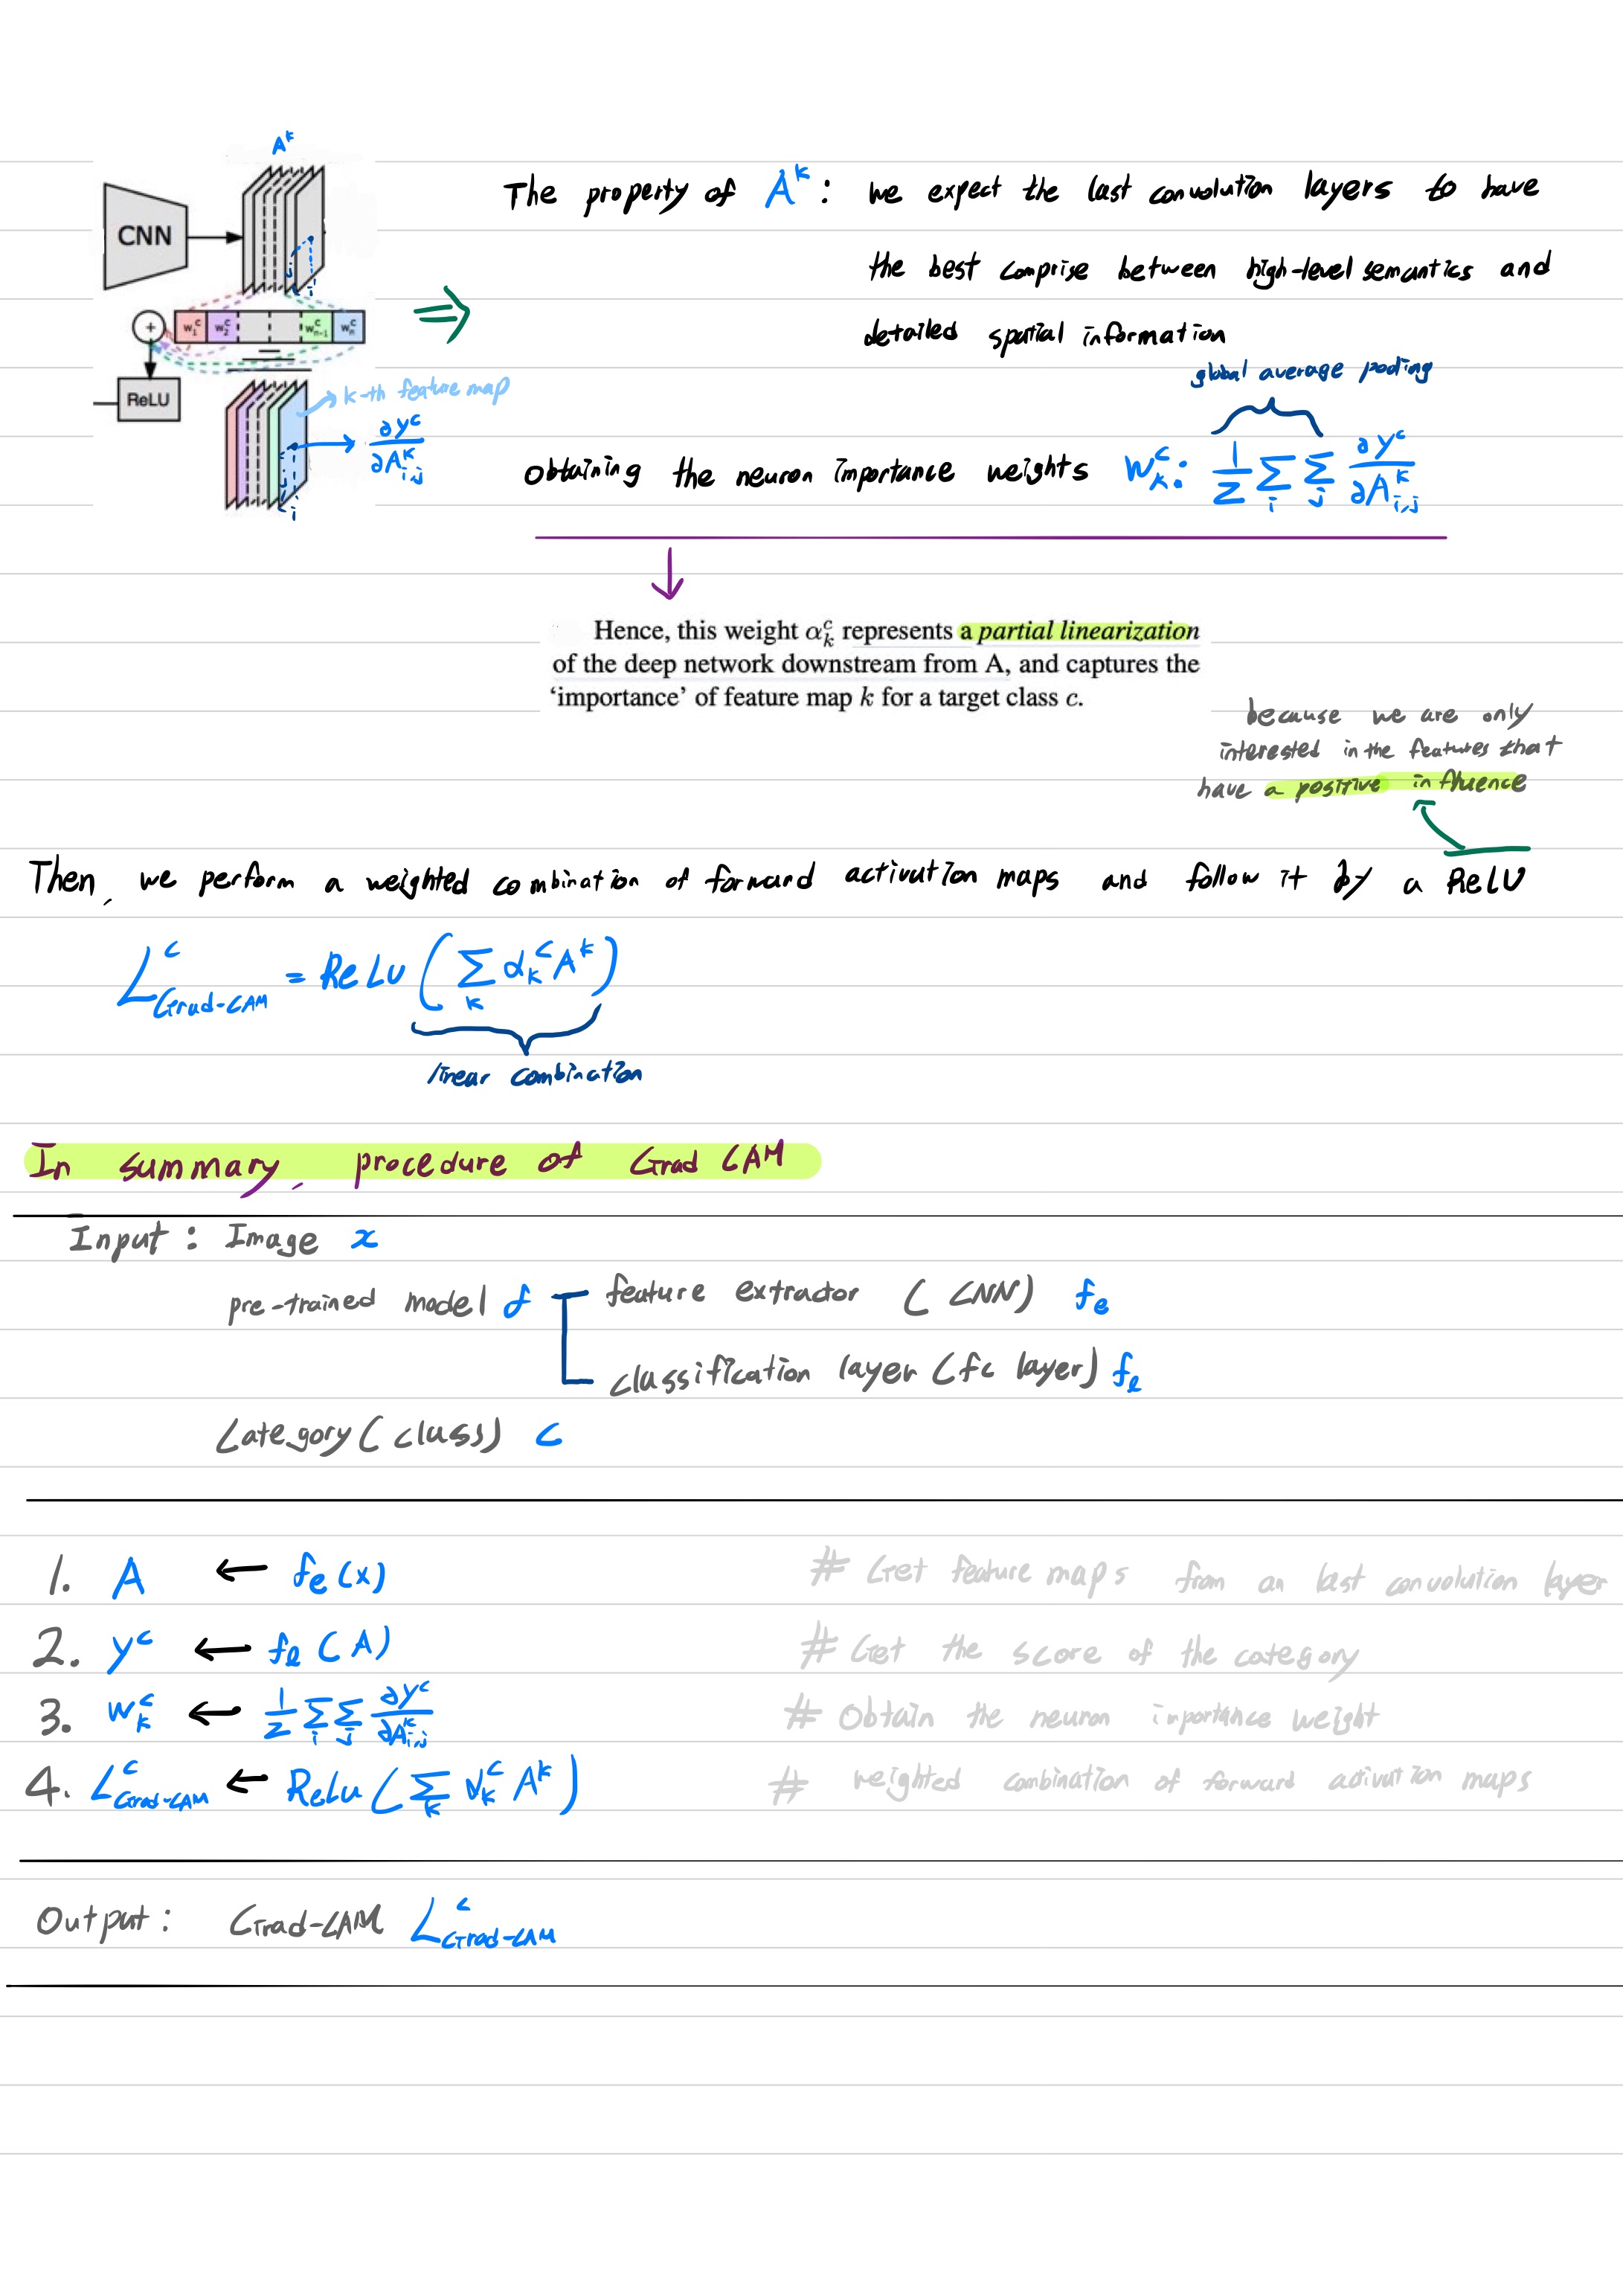 A^k
CNN
w_1^c w_2^c w_{n-1}^c w_n^c
+
ReLU
k-th feature map
∂y^c / ∂A^k_{i,j}
j
i
The property of A^k : we expect the last convolution layers to have
the best comprise between high-level semantics and
detailed spatial information
global average pooling
obtaining the neuron importance weights w_k^c : 1/Z Σ_i Σ_j ∂y^c / ∂A^k_{i,j}
Hence, this weight α_k^c represents a partial linearization
of the deep network downstream from A, and captures the
‘importance’ of feature map k for a target class c.
because we are only
interested in the features that
have a positive influence
Then, we perform a weighted combination of forward activation maps and follow it by a ReLU
L^c_{Grad-CAM} = ReLu ( Σ_k α_k^c A^k )
linear combination
In summary, procedure of Grad CAM
Input : Image x
pre-trained model f feature extractor ( CNN ) f_e
classification layer ( fc layer ) f_l
Category ( class ) c
1. A ← f_e (x) # Get feature maps from an last convolution layer
2. y^c ← f_l ( A ) # Get the score of the category
3. w_k^c ← 1/Z Σ_i Σ_j ∂y^c / ∂A^k_{i,j} # Obtain the neuron importance weight
4. L^c_{Grad-CAM} ← ReLu ( Σ_k α_k^c A^k ) # weighted combination of forward activation maps
Output : Grad-CAM L^c_{Grad-CAM}